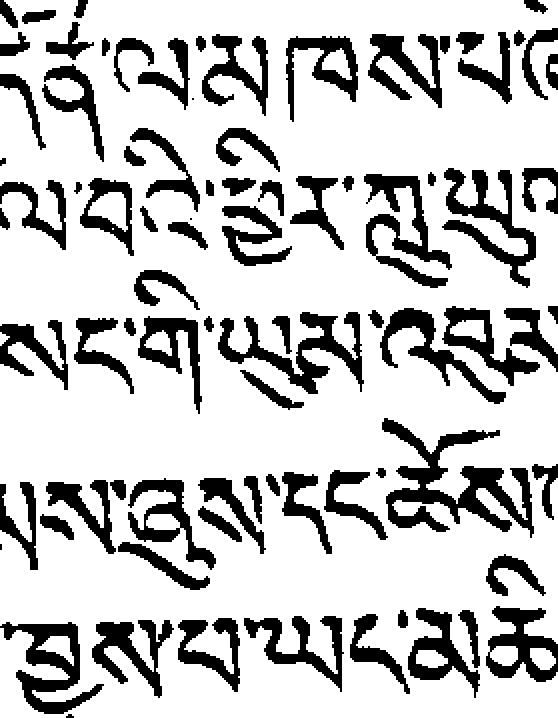 ལ་མཁས་པ་
ལ་བའི་ཕྱིར་ཀླུ་ཡུལ
སང་གི་ཡུམ་འབུམ
ས་ཞུས་དང་ཆོས
་བྱས་པ་ཡང་མཆི